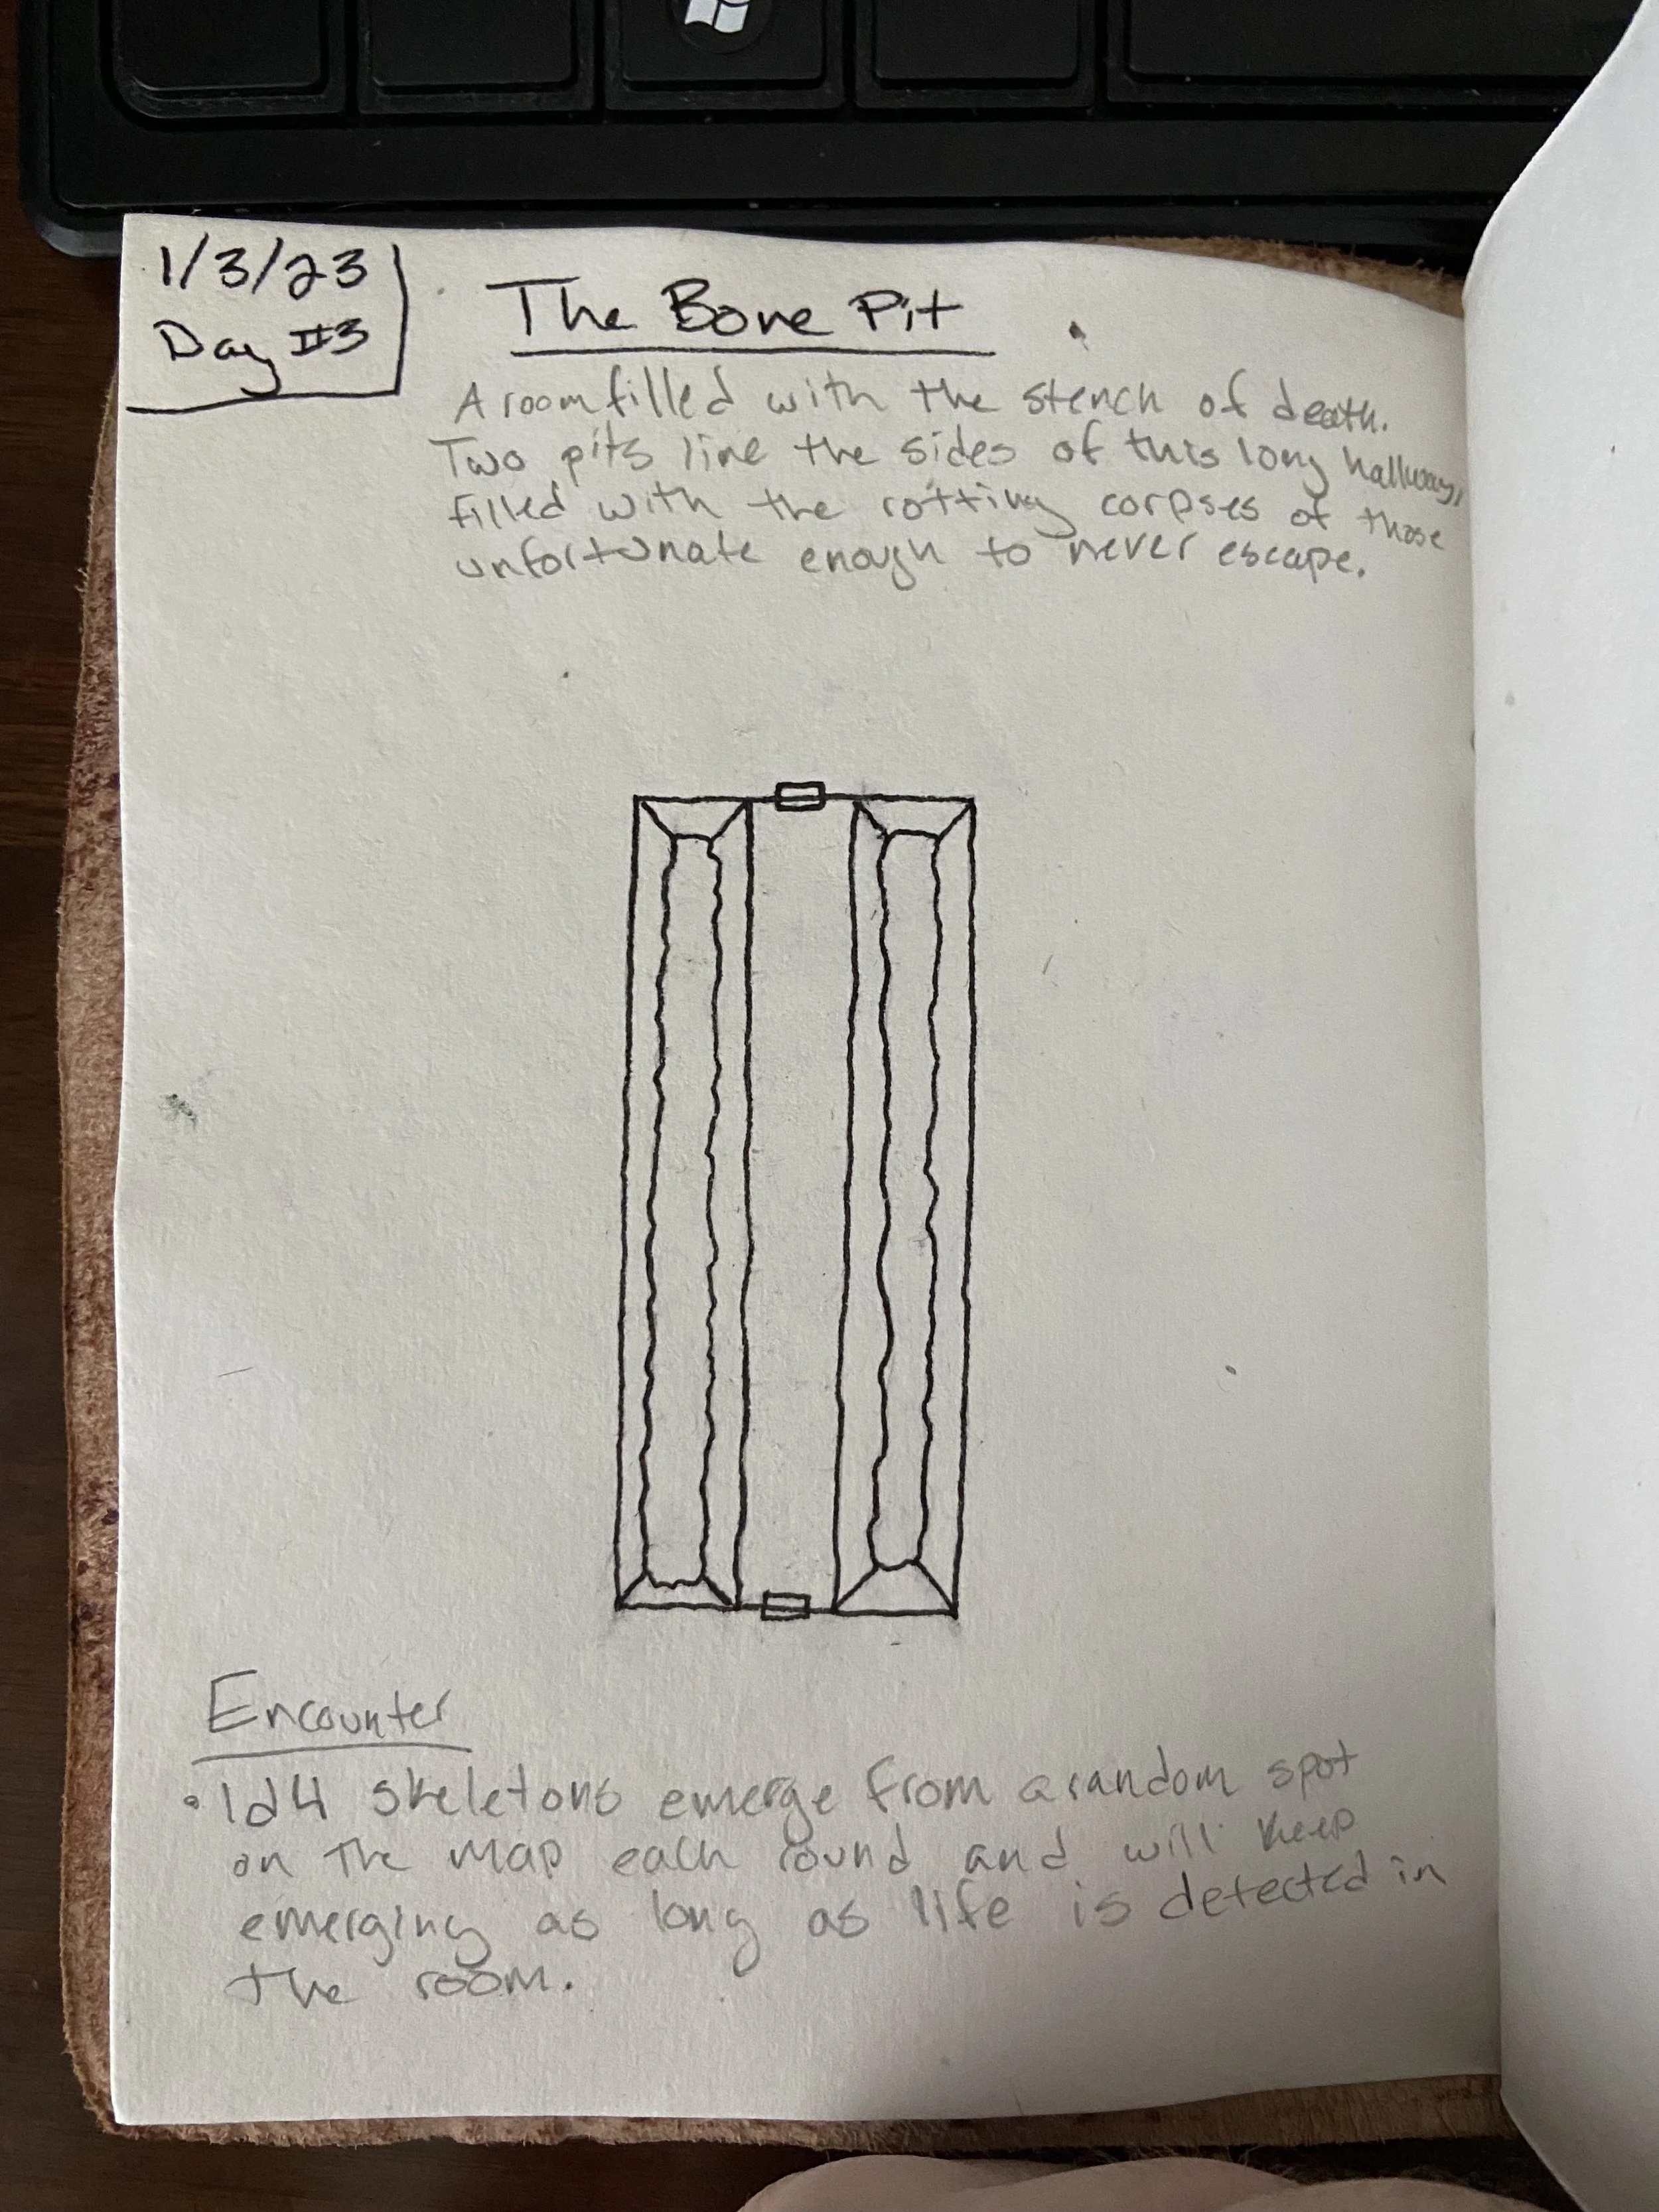 1/3/23
Day #3
The Bone Pit
A room filled with the stench of death.
Two pits line the sides of this long hallway,
filled with the rotting corpses of those
unfortunate enough to never escape.
Encounter
• 1d4 skeletons emerge from a random spot
on the map each round and will keep
emerging as long as life is detected in
the room.